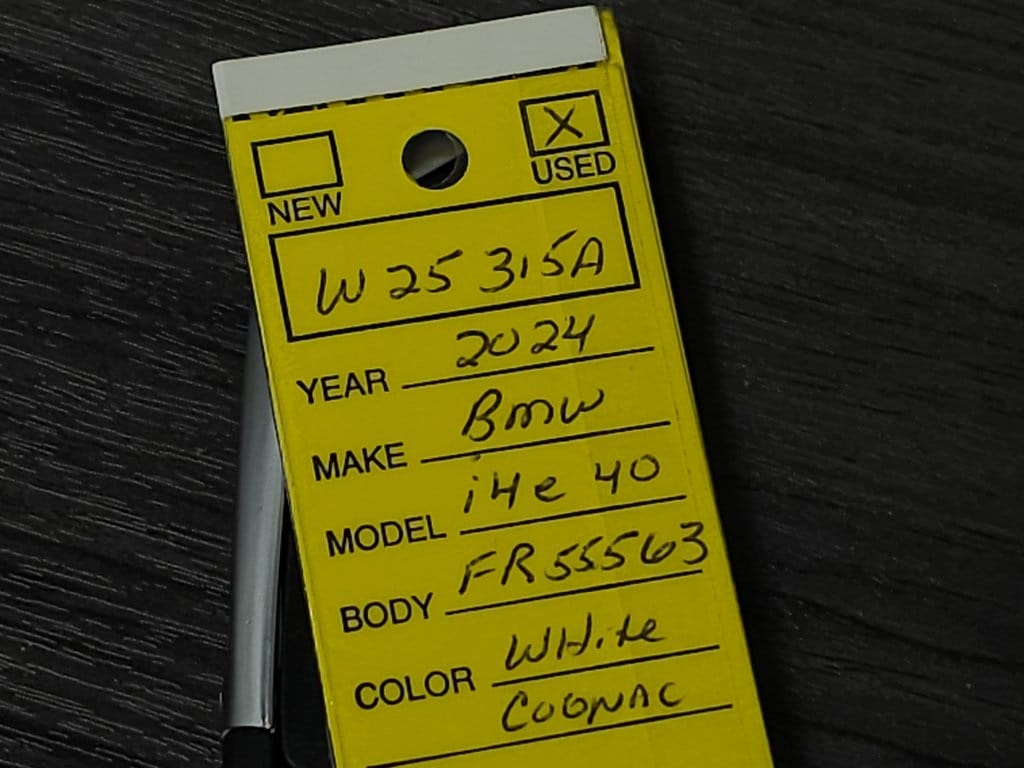 X
NEW USED
W25 315A
YEAR 2024
MAKE BMW
MODEL i4e 40
BODY FR55563
COLOR WHite
COGNAC